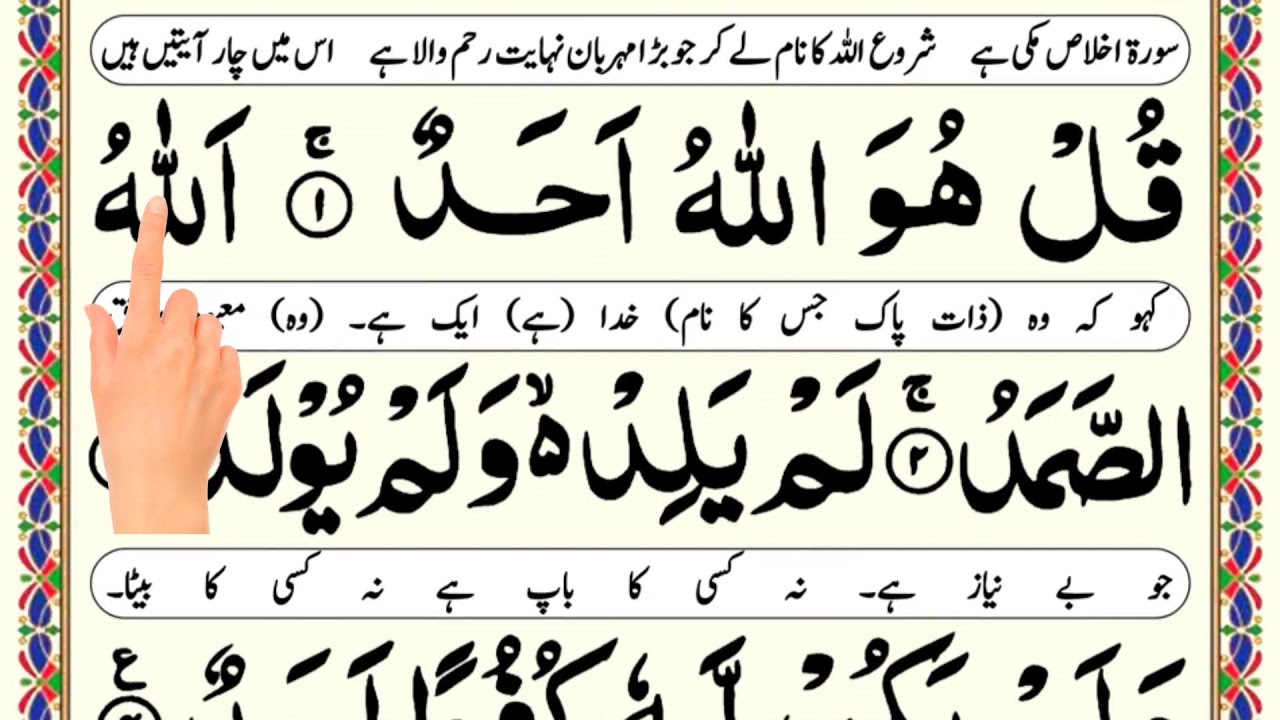 سورۃ اخلاص مکی ہے شروع اللہ کا نام لے کر جو بڑا مہربان نہایت رحم والا ہے اس میں چار آیتیں ہیں
قُلْ هُوَ اللّٰهُ اَحَدٌ ۚ ۱ اَللّٰهُ
کہو کہ وہ (ذات پاک جس کا نام) خدا (ہے) ایک ہے۔ (وہ)
الصَّمَدُ ۚ ۲ لَمْ يَلِدْ ۙ۵ وَلَمْ يُوْلَدْ
جو بے نیاز ہے۔ نہ کسی کا باپ ہے نہ کسی کا بیٹا۔
وَلَمْ يَكُنْ لَّهٗ كُفُوًا اَحَدٌ ع